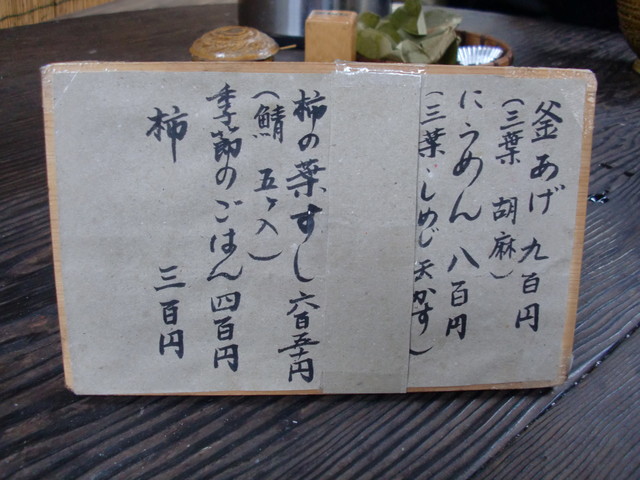 釜あげ 九百円
(三葉 胡麻)
にうめん 八百円
(三葉、しめじ 天かす)
柿の葉すし 六百五十円
(鯖 五ヶ入)
季節のごはん 四百円
柿 三百円